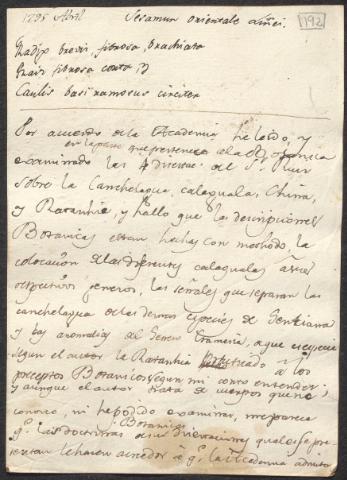 1795 Abril Sesamun orientale 192
Radix brevis fibrosa brachiata
fibrosa
Caulis basi ramosus circiter
Por acuerdo de la Academia he leido, y
en la parte que pertenece a la Botanica
examinado las 4 disertac.s del S.r Ruiz
sobre la Canchelagua, calaguala, China,
y Ratanhia, y hallo que las descripciones
Botanicas estan hechas con methodo, la
colocacion de las diferentes calagualas a sus
respectivos generos, las señales que separan la
canchelagua de las demas especies de Gentiana
y las del Genero Crameria, a que
segun el autor la Ratanhia a los
preceptos Botanicos segun mi corto entender;
y aunque el autor trata de que no
conozco, ni he podido examinar, me parece
q.e las doctrinas Botanicas de sus disertaciones
le hacen acreedor a q.e la Academia admita